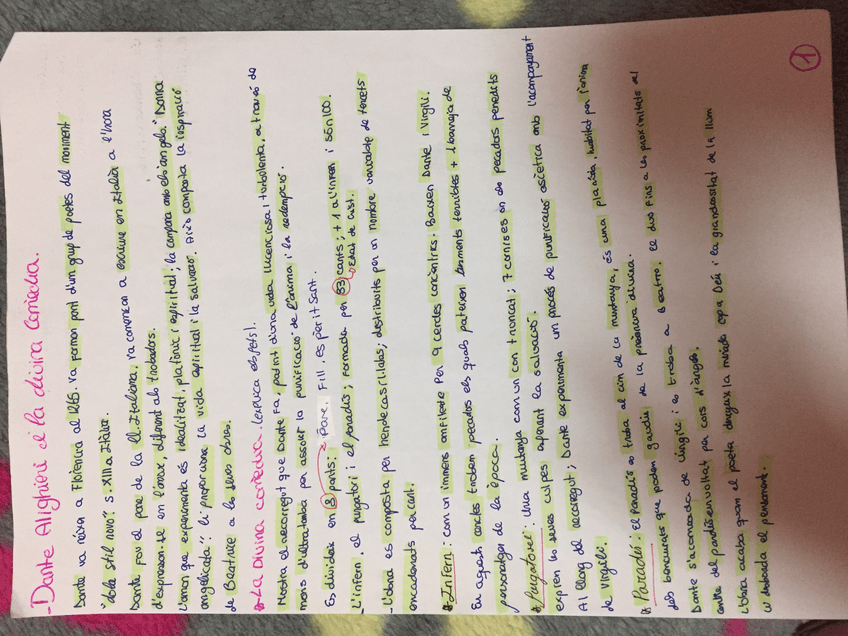 -Dante Alighieri i la divina comèdia.
Dante va néixer a Florència al 1265. va formar part d'un grup de poetes del moviment
"dolce stil novo". S. XIII a Itàlia.
Dante fou el pare de la ll. Italiana. va començar a escriure en Italià a l'hora
d'expressar-se en l'amor, diferent als trobadors.
L'amor que experimenta és idealitzat, platònic i espiritual; la compara amb els àngels. "Donna
angelicata" li proporciona la vida espiritual i la salvació. Això comporta la inspiració
de Beatrice a les seves obres.
La Divina comèdia. (explica els fets).
Mostra el recorregut que Dante fa, partint d'una vida llicenciosa i turbolenta, a través de
mons d'ultratomba per assolir la purificació de l'ànima i la redempció.
Es divideix en 3 parts: Pare. Fill. Esperit Sant.
-L'infern, el purgatori i el paradís; formada per 33 cants; + 1 a l'infern i són 100.
Edat de Crist.
-L'obra és composta per hendecasíl·labs; distribuïts per un nombre variable de tercets
encadenats per cant.
Infern: com un immens amfiteatre per 9 cercles concèntrics. Baixen Dante i Virgili.
En aquests cercles trobem pecadors els quals pateixen turments terribles + barreja de
personatges de la època.
Purgatori: Una muntanya com un con truncat; 7 cornises on els pecadors penedits
expien les seves culpes esperant la salvació.
Al llarg del recorregut; Dante experimenta un procés de purificació ascètica amb l'acompanyament
de Virgili.
Paradís: El Paradís es troba al cim de la muntanya, és una planície, habitat per l'ànima
dels benaurats que poden gaudir de la presència divina.
Dante s'acomiada de Virgili i es troba a Beatriu. El duu fins a les proximitats del
centre del paradís envoltat per cors d'àngels.
L'obra acaba quan el poeta dirigeix la mirada cap a Déu i la grandiositat de la llum
el desborda el pensament.
1